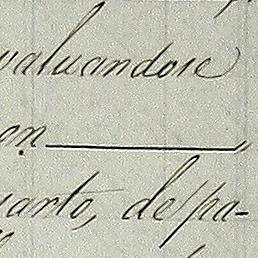 valuandose
on ________,
uarto, de pa-